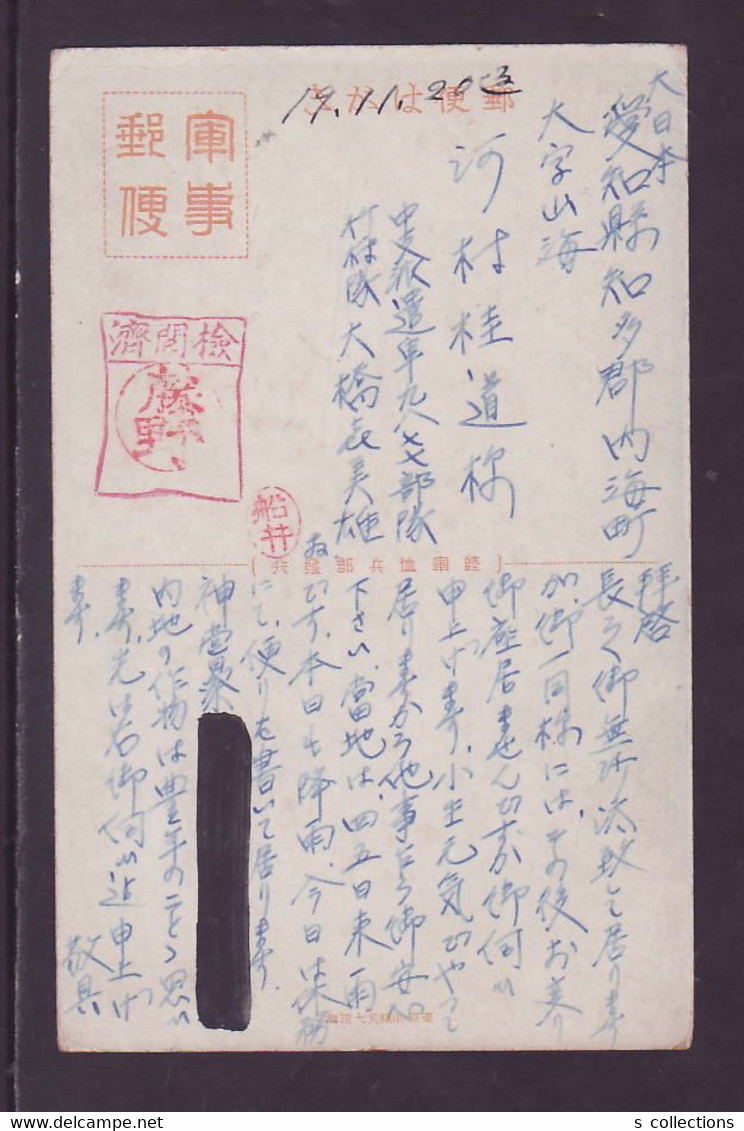 郵便はがき
19.11.20
軍事郵便
検閲済
藤野
船井
大日本
愛知縣知多郡内海町
大字山海
河村桂道様
中支派遣軍
竹村隊大橋喜美雄
陸軍恤兵部發行
拝啓
長らく御無沙汰致して居ります
が、御一同様には、その後お変り
御座居ませんですか御伺い
申上げます、小生元気でやって
居りますから他事乍ら御安心
下さい、當地は、四五日来雨
です、本日も降雨、今日は休務
にて、便りを書いて居ります、
内地の作物は豊年のことゝ思い
ます、先は右御伺い迄申上げ
ます、
敬具
s collections